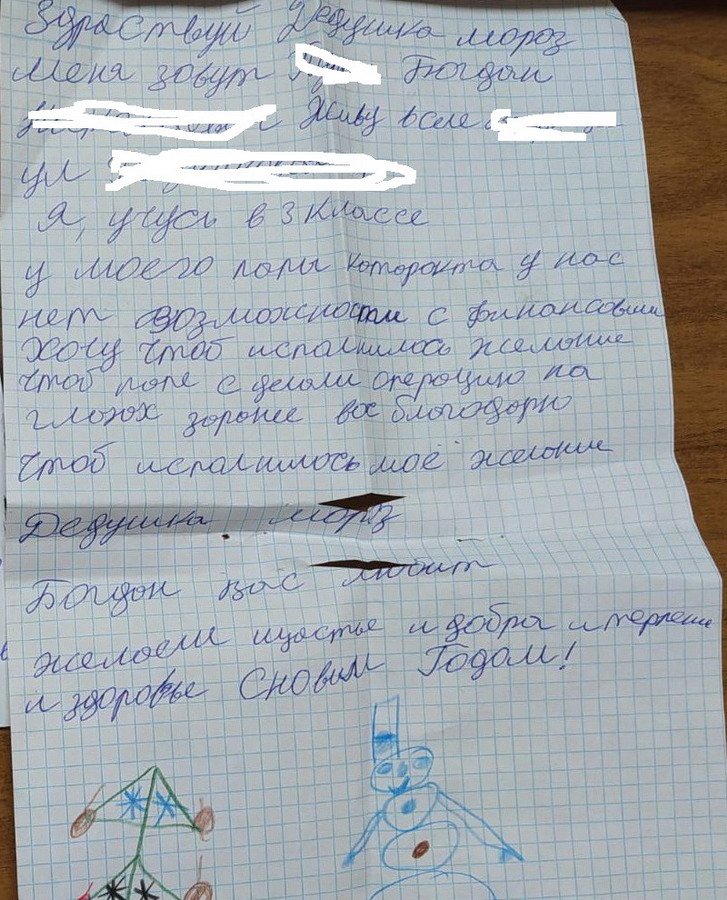 Здраствуй Дедушка мороз
Меня зовут Богдан
Живу в селе
ул
Я, учусь в 3 Классе
у моего папы катаракта у нас
нет возможности с финансовыи
Хочу чтоб исполнилось желание
чтоб папе сделали операцию на
глазах зарание вас благодарю
Чтоб исполнилось моё желание
Дедушка мороз
Богдан вас любит
желаем щастье и добра и терпени
и здоровье Сновым Годом!